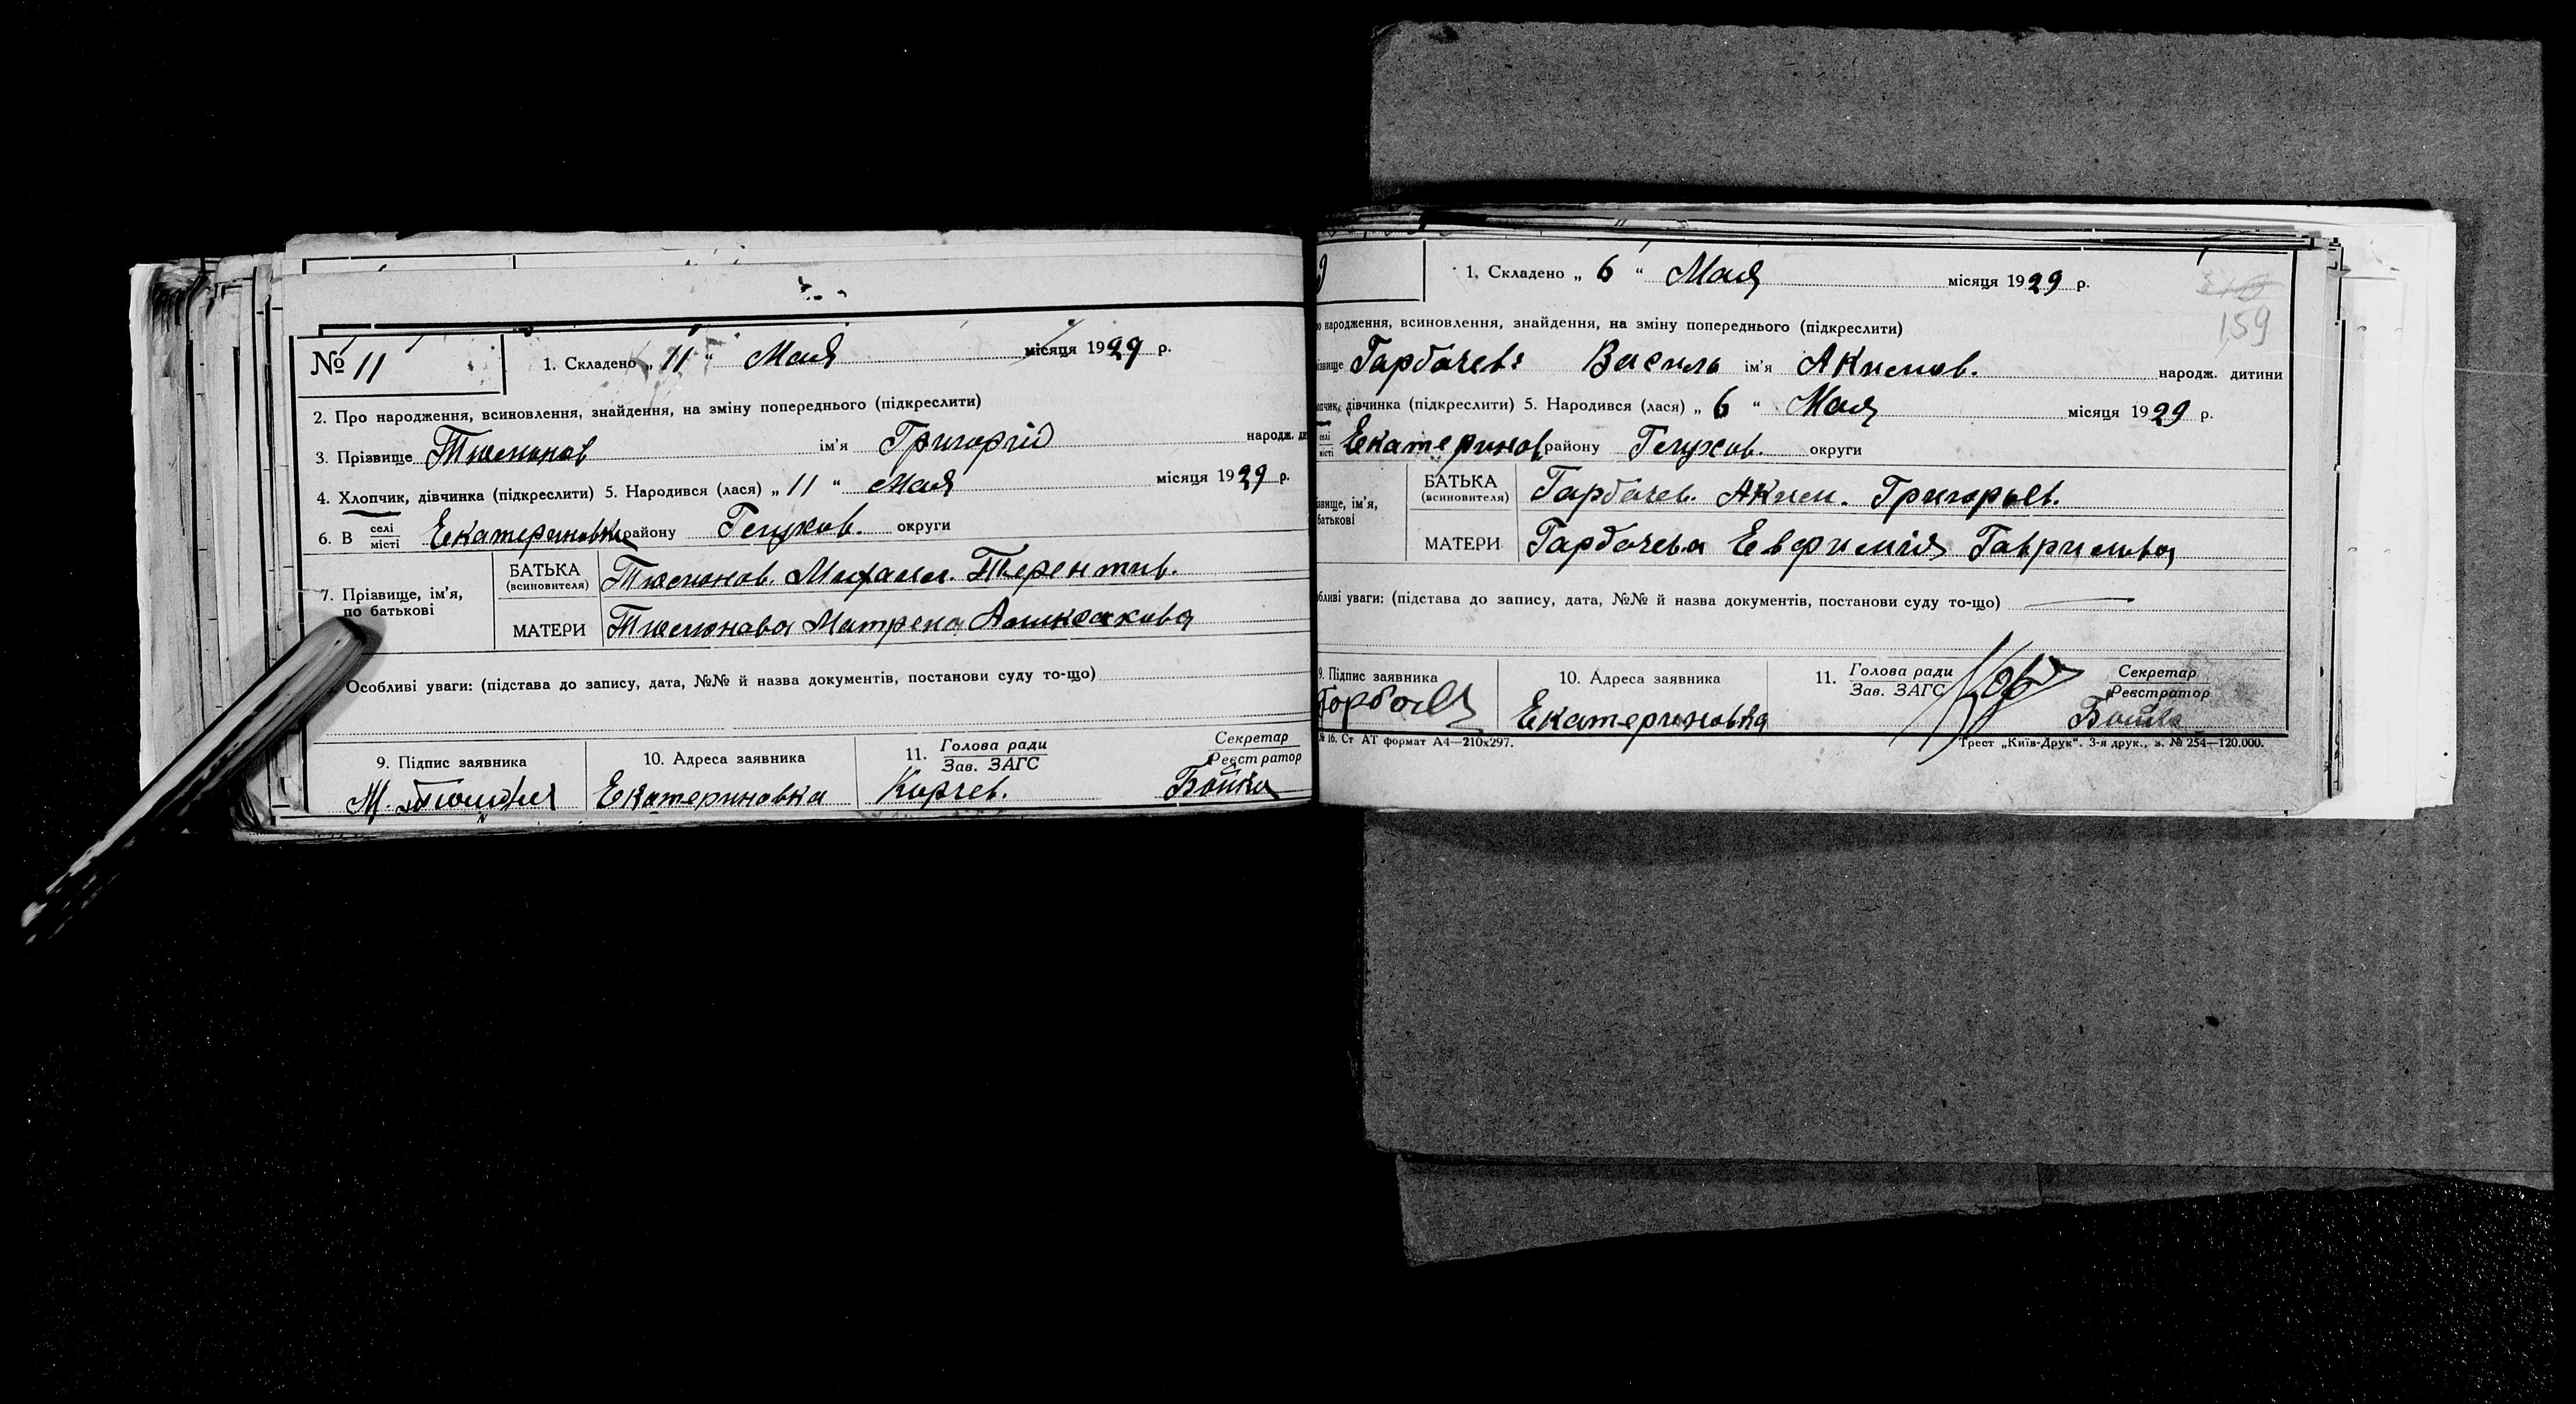 № 11
1. Складено „ 11 “ Мая місяця 1929 р.
2. Про народження, всиновлення, знайдення, на зміну попереднього (підкреслити)
3. Прізвище Тимонов ім'я Григорій народж. ди
4. Хлопчик, дівчинка (підкреслити) 5. Народився (лася) „ 11 “ Мая місяця 1929 р.
6. В селі місті Екатериновке району Глухов. округи
7. Прізвище, ім'я, по батькові
БАТЬКА (всиновителя) Тимонов. Михаил. Терентив.
МАТЕРИ Тимонова Матрена
Особливі уваги: (підстава до запису, дата, №№ й назва документів, постанови суду то-що)
9. Підпис заявника 10. Адреса заявника 11. Голова ради Зав. ЗАГС Секретар Реєстратор
М. Екатериновка Корчев. Бойко
9
1. Складено „ 6 “ Мая місяця 1929 р.
159
о народження, всиновлення, знайдення, на зміну попереднього (підкреслити)
звище Гарбачев: Василь ім'я Акимов. народж. дитини
опчик, дівчинка (підкреслити) 5. Народився (лася) „ 6 “ Мая місяця 1929 р.
селі місті Екатеринов району Глухов. округи
звище, ім'я, батькові
БАТЬКА (всиновителя) Гарбачев. Аким. Григорьев.
МАТЕРИ Гарбачева Евфимия Гаврилова
обливі уваги: (підстава до запису, дата, №№ й назва документів, постанови суду то-що)
9. Підпис заявника 10. Адреса заявника 11. Голова ради Зав. ЗАГС Секретар Реєстратор
Екатериновка Бойко
№ 16. Ст АТ формат А4—210х297. Трест „Київ-Друк“. 3-я друк., з. № 254—120.000.